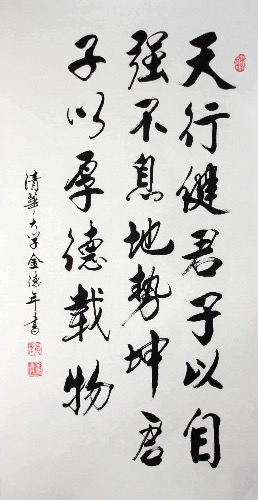 天行健君子以自
强不息地勢坤君
子以厚德載物
清華大学金德年書